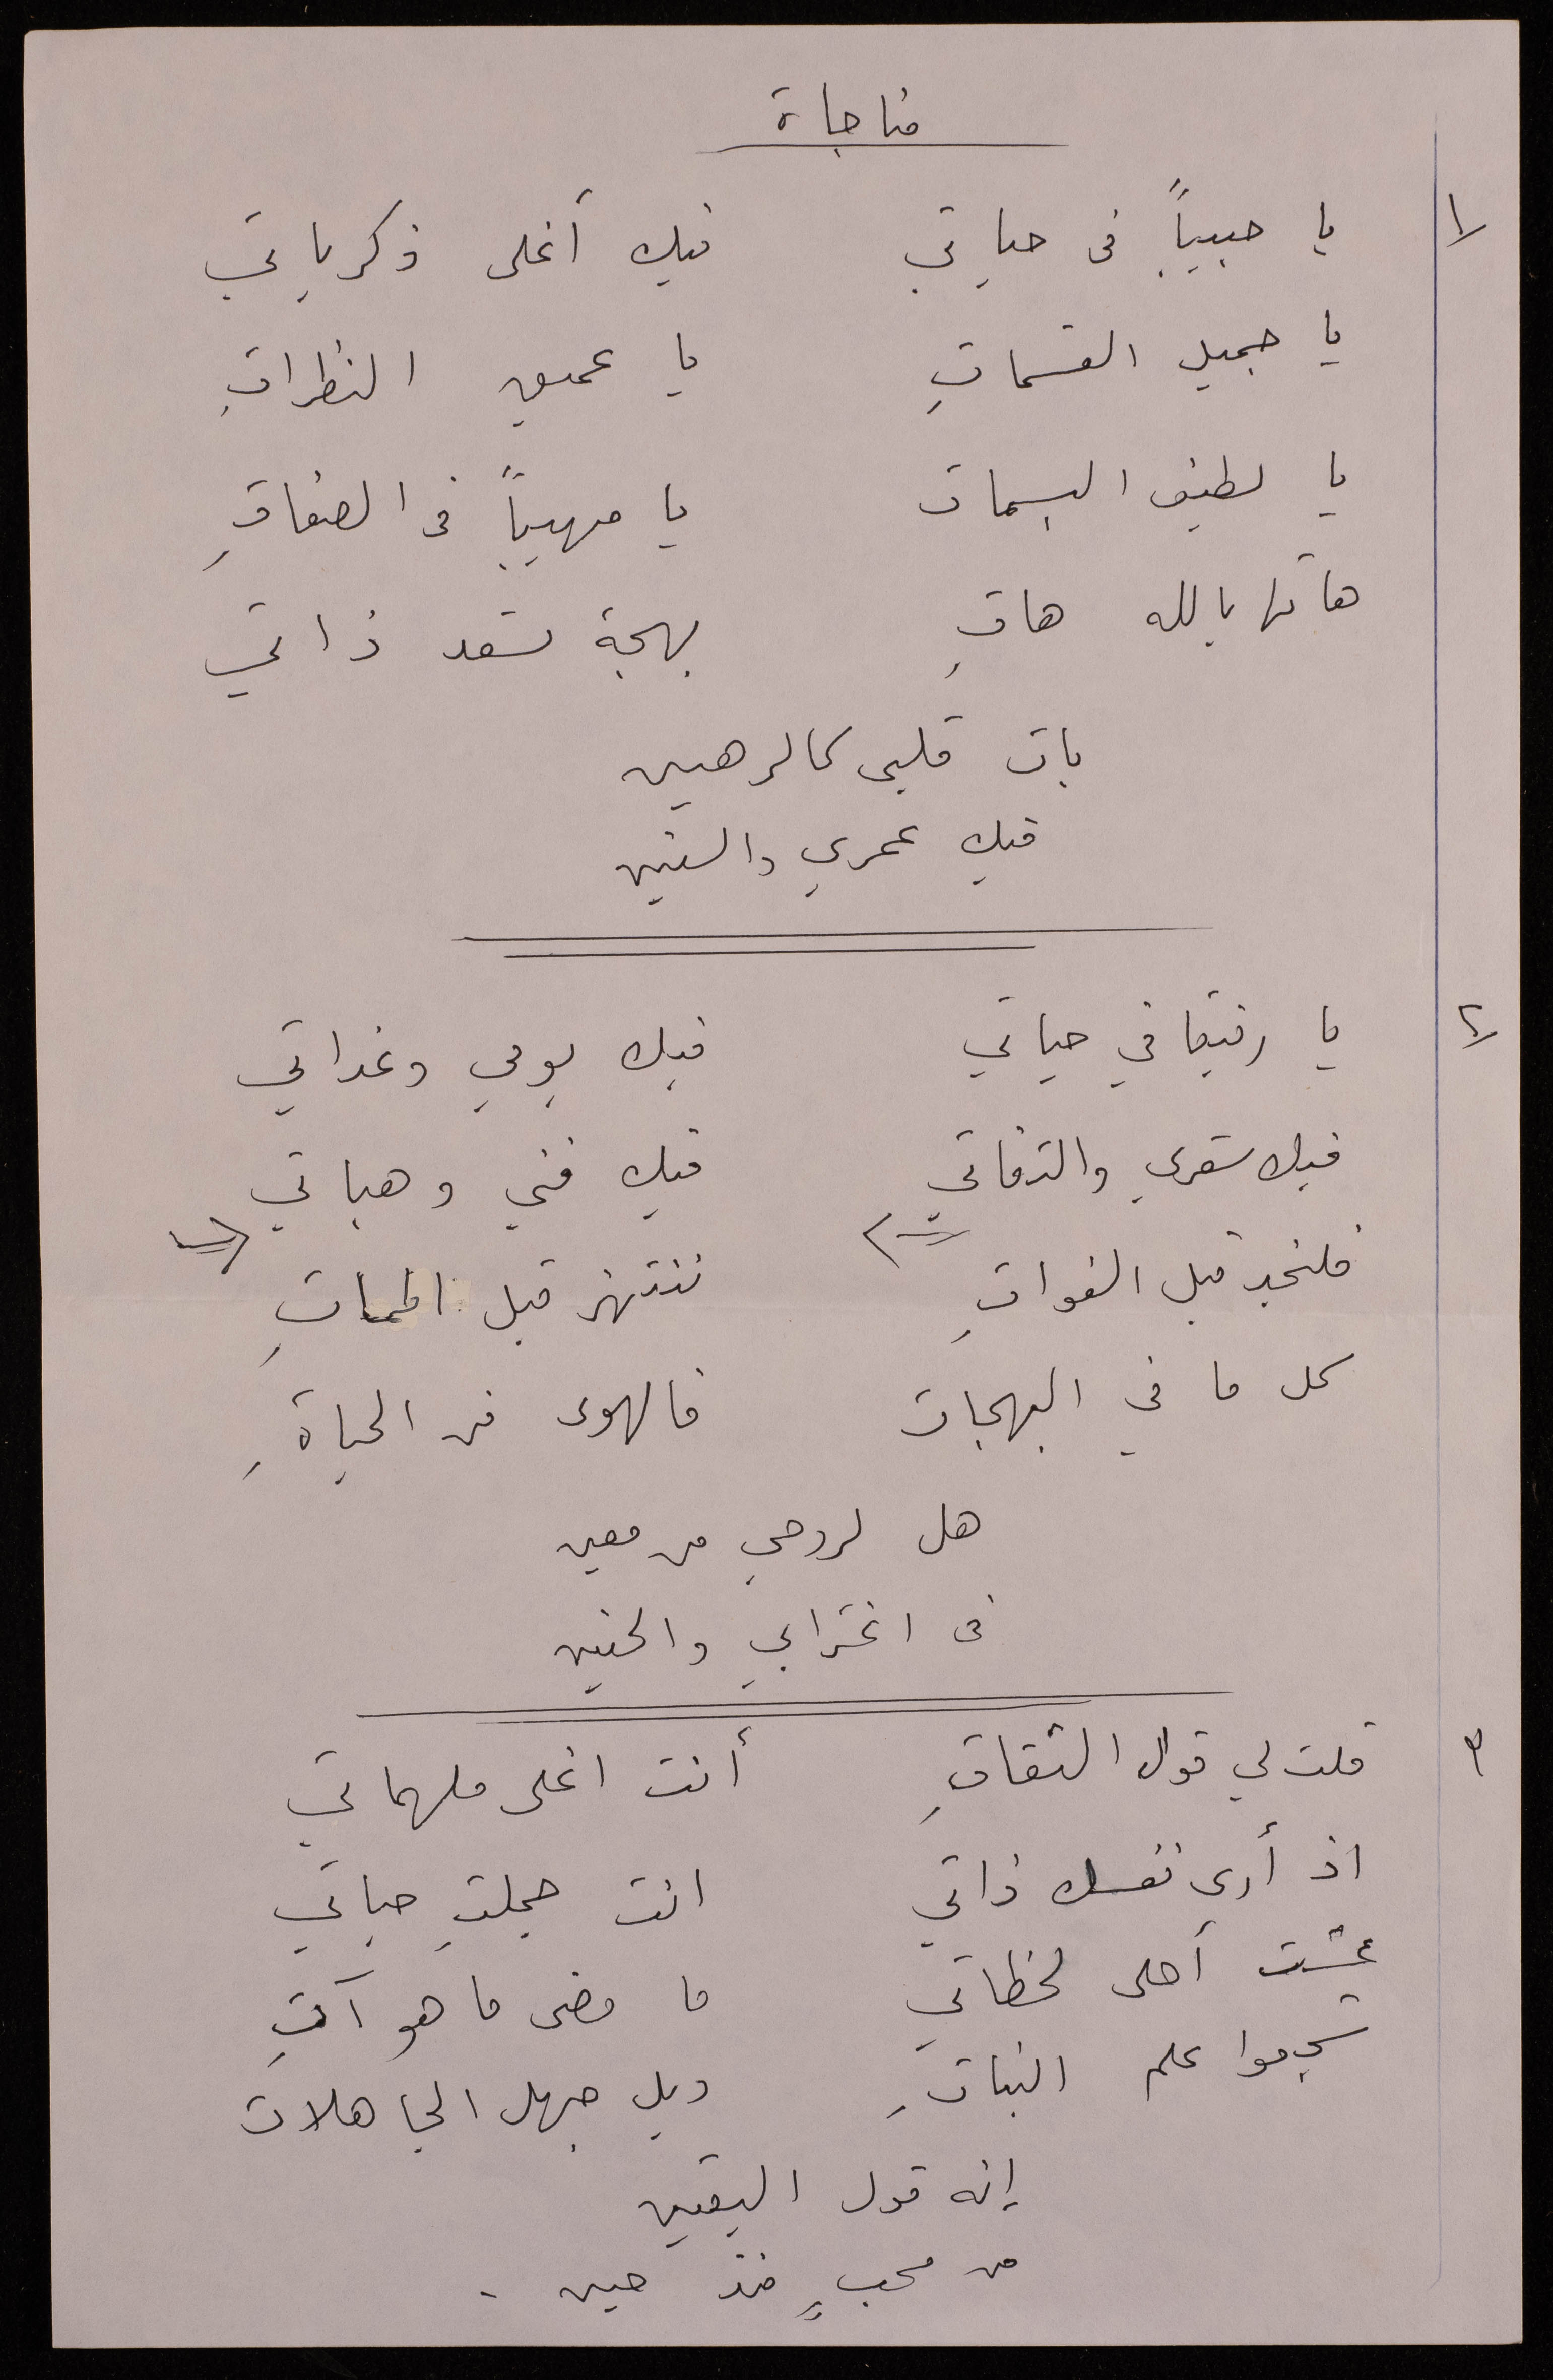 مناجاة
١ يا حبيباً في حياتي فيك أغلى ذكرياتي
يا جميل القسماتِ يا عميق النظراتِ
يا لطيف البسمات يا مهيباً في الصفاتِ
هاتها بالله هاتِ بهجة تسعد ذاتي
بات قلبي كالرهين
فيك عمري والسنين
٢ يا رفيقا في حياتي فيك يومي وغداتي
فيك شعري والتفاتي فيك فني وهباتي
فلنجد قبل الفواتِ ننتهز قبل المماتِ
كل ما في البهجات فالهوى فن الحياةِ
هل لروحي من معين
في اغترابي والحنين
٣ قلت لي قول الثقاتِ أنت اغلى ملهماتي
اذ أرى نفسك ذاتي انت جملتِ حياتي
عشت أحلى لحظاتي ما مضى ما هو آتِ
علم النباتِ ويل جهل الجاهلات
إنه قول اليقين
من محبٍ منذ حين .